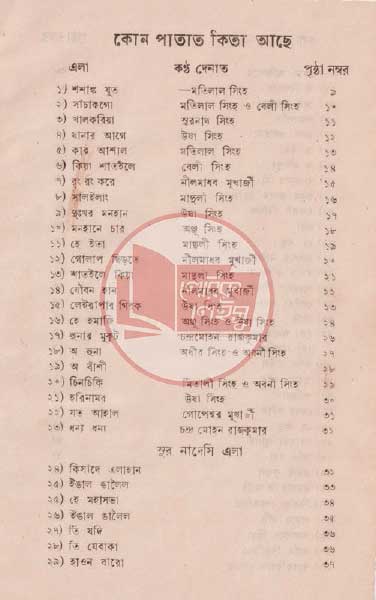 কোন পাতাত কিতা আছে
এলা কণ্ঠ দেনাত পৃষ্ঠা নম্বর
১) শশাঙ্ক যুত —মতিলাল সিংহ ৯
২) সাঁচাকগো মতিলাল সিংহ ও বেলী সিংহ ১০
৩) খালকরিয়া সুরনাথ সিংহ ১১
৪) যানার আগে উষা সিংহ ১২
৫) কার আশাল মতিলাল সিংহ ১৩
৬) কিয়া শাতইলে বেলী সিংহ ১৪
৭) রুং রুং করে নীলমাধব মুখার্জী ১৫
৮) সালইলাং মাধুলী সিংহ ১৬
৯) মনহান উষা সিংহ ১৭
১০) মনহানে চার অঞ্জু সিংহ ১৮
১১) হে ইতা মাধুলী সিংহ ১৯
১২) গোলাপ ছিড়তে নীলমাধব মুখার্জী ২০
১৩) শাতইলে কিয়া সিংহ ২১
১৪) যৌবন হান নীলমাধব
১৫) উষা
১৬) হে অঞ্জু সিংহ ও উষা সিংহ ২৪
১৭) মুকুট চন্দ্রমোহন রাজকুমার ২৬
১৮) অ গুনা অধীর সিংহ ও অবনী সিংহ ২৭
১৯) অ বাঁশী ২৮
২০) চিনচিকি মিতালী সিংহ ও অবনী সিংহ ২৯
২১) হরিনামর উষা সিংহ ৩০
২২) যত আহাল গোপেশ্বর মুখার্জী ৩১
২৩) ধন্য ধন্য চন্দ্র মোহন রাজকুমার ৩১
সুর নাদেসি এলা
২৪) কিসাদে এলাহান ৩৩
২৫) ইঙাল ঙালৈল ৩৩
২৫) হে মহাসভা ৩৪
২৬) ইঙাল ঙালৈল ৩৪
২৭) তি যদি ৩৫
২৮) তি যেবাকা ৩৬
২৯) হাওন বারো ৩৭